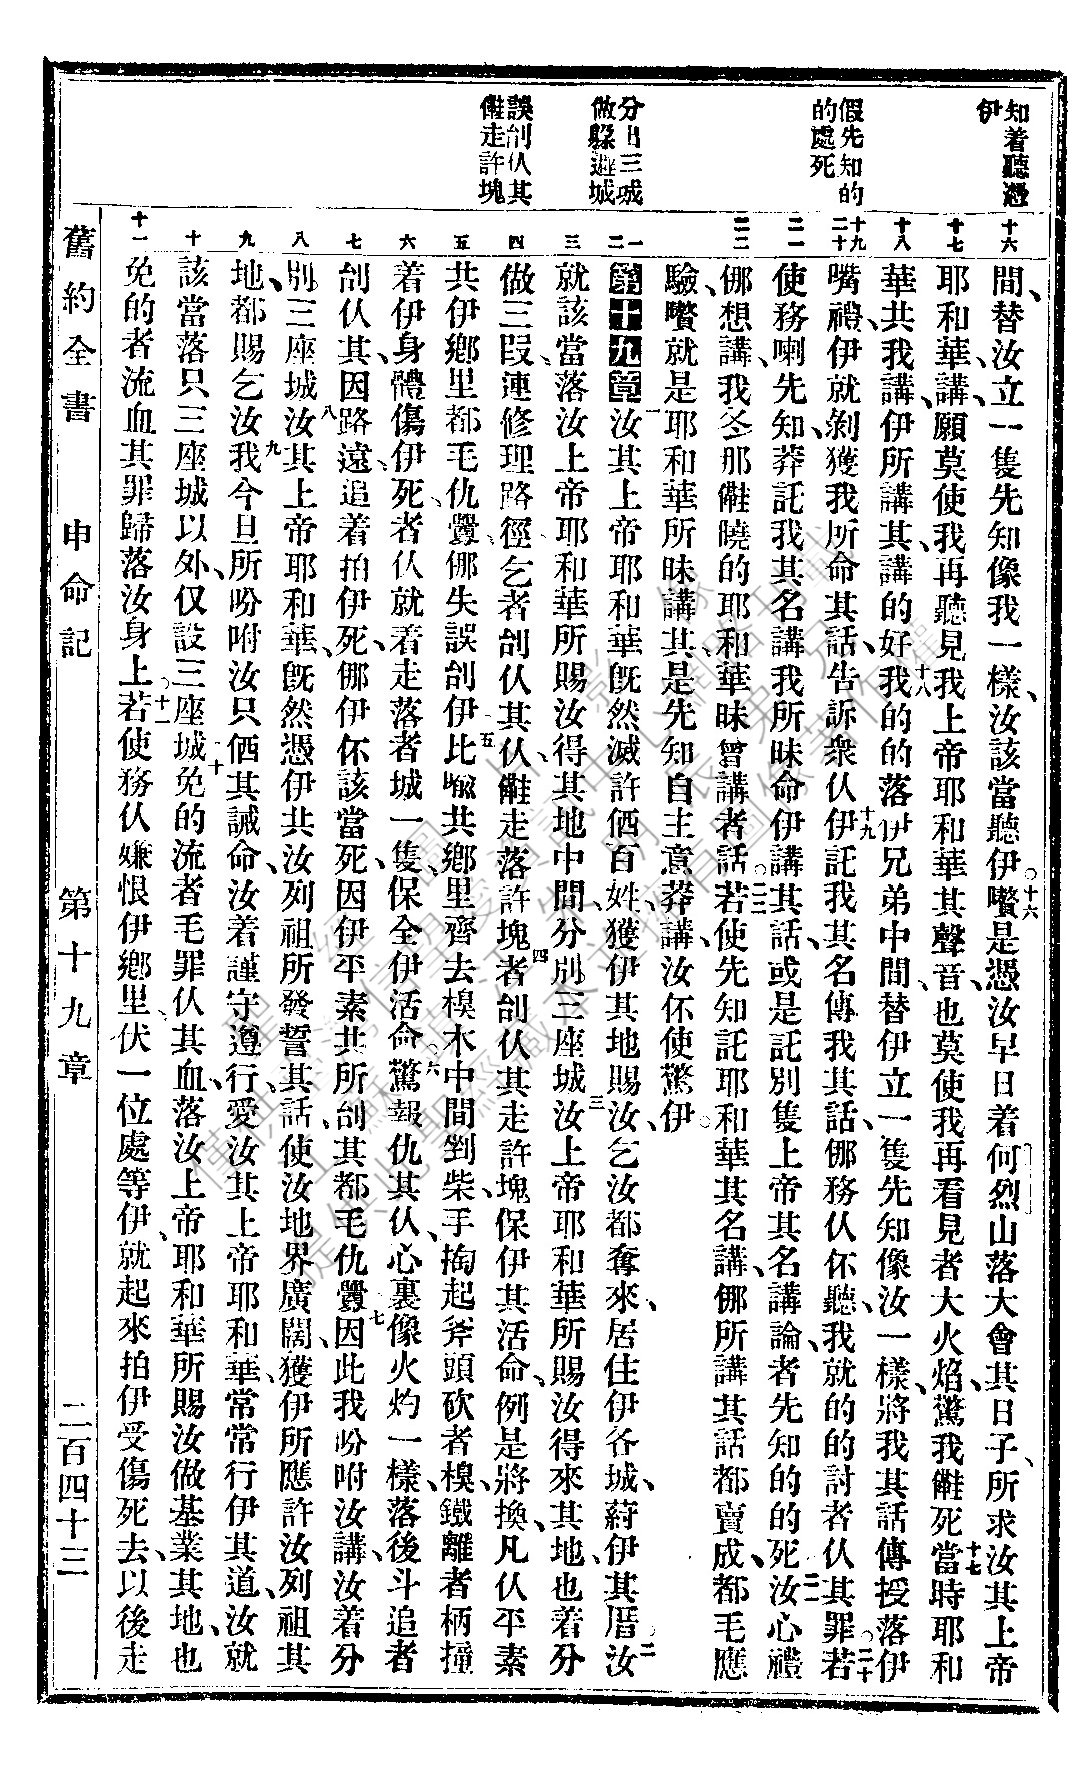 知着聽憑
伊
假先知的
的處死
分出三城
做躲避城
誤刣仈其
儺走許塊
十六
十七
十八
十九
二十
二一
二二
一
二
三
四
五
六
七
八
九
十
十一
間、替汝立一隻先知像我一樣、汝該當聽伊。十六囋是憑汝早日着何烈山落大會其日子、所求汝其上帝
耶和華、講、願莫使我再聽見我上帝耶和華其聲音、也莫使我再看見者大火焰、驚我儺死、十七當時耶和
華共我講、伊所講其、講的好、十八我的的落伊兄弟中間、替伊立一隻先知像汝一樣、將我其話傳授落伊
嘴禮、伊就剝獲我所命其話、告訴衆仈、十九伊託我其名傳我其話、㑚務仈伓聽、我就的的討者仈其罪。二十若
使務喇先知、莽託我其名講我所昧命伊講其話、或是託別隻上帝其名講論、者先知的的死、二一汝心禮
㑚想講、我冬那儺曉的耶和華昧曾講者話。二二若使先知託耶和華其名講、㑚所講其話都賣成、都毛應
驗、囋就是耶和華所昧講其、是先知自主意莽講、汝伓使驚伊。
第十九章一汝其上帝耶和華旣然滅許俩百姓、獲伊其地賜汝、乞汝都奪來、居住伊各城、葤伊其厝、二汝
就該當落汝上帝耶和華所賜汝得其地中間分別三座城、三汝上帝耶和華所賜汝得來其地、也着分
做三叚、連修理路徑、乞者刣仈其仈儺走落許塊、四者刣仈其走許塊保伊其活命、例是將換、凡仈平素
共伊鄉里都毛仇釁、㑚失誤刣伊、五比喩共鄉里齊去樹木中間劉柴、手掏起斧頭砍者樹、鐵離者柄撞
着伊身體傷伊死、者仈就着走落者城一隻、保全伊活命、六驚報仇其仈、心裏像火灼一樣、落後斗追者
刣仈其、因路遠追着拍伊死、㑚伊伓該當死、因伊平素共所刣其都毛仇釁、七因此我吩咐汝講、汝着分
別三座城、八汝其上帝耶和華、旣然憑伊共汝列祖所發誓其話、使汝地界廣闊、獲伊所應許汝列祖其
地、都賜乞汝、九我今旦所吩咐汝只俩其誡命、汝着謹守遵行、愛汝其上帝耶和華、常常行伊其道、汝就
該當落只三座城以外、仅設三座城、十免的流者毛罪仈其血、落汝上帝耶和華所賜汝做基業其地、也
免的者流血其罪歸落汝身上。十一若使務仈嫌恨伊鄉里、伏一位處等伊、就起來拍伊受傷死去、以後走
舊約全書　申命記　第十九章　二百四十三